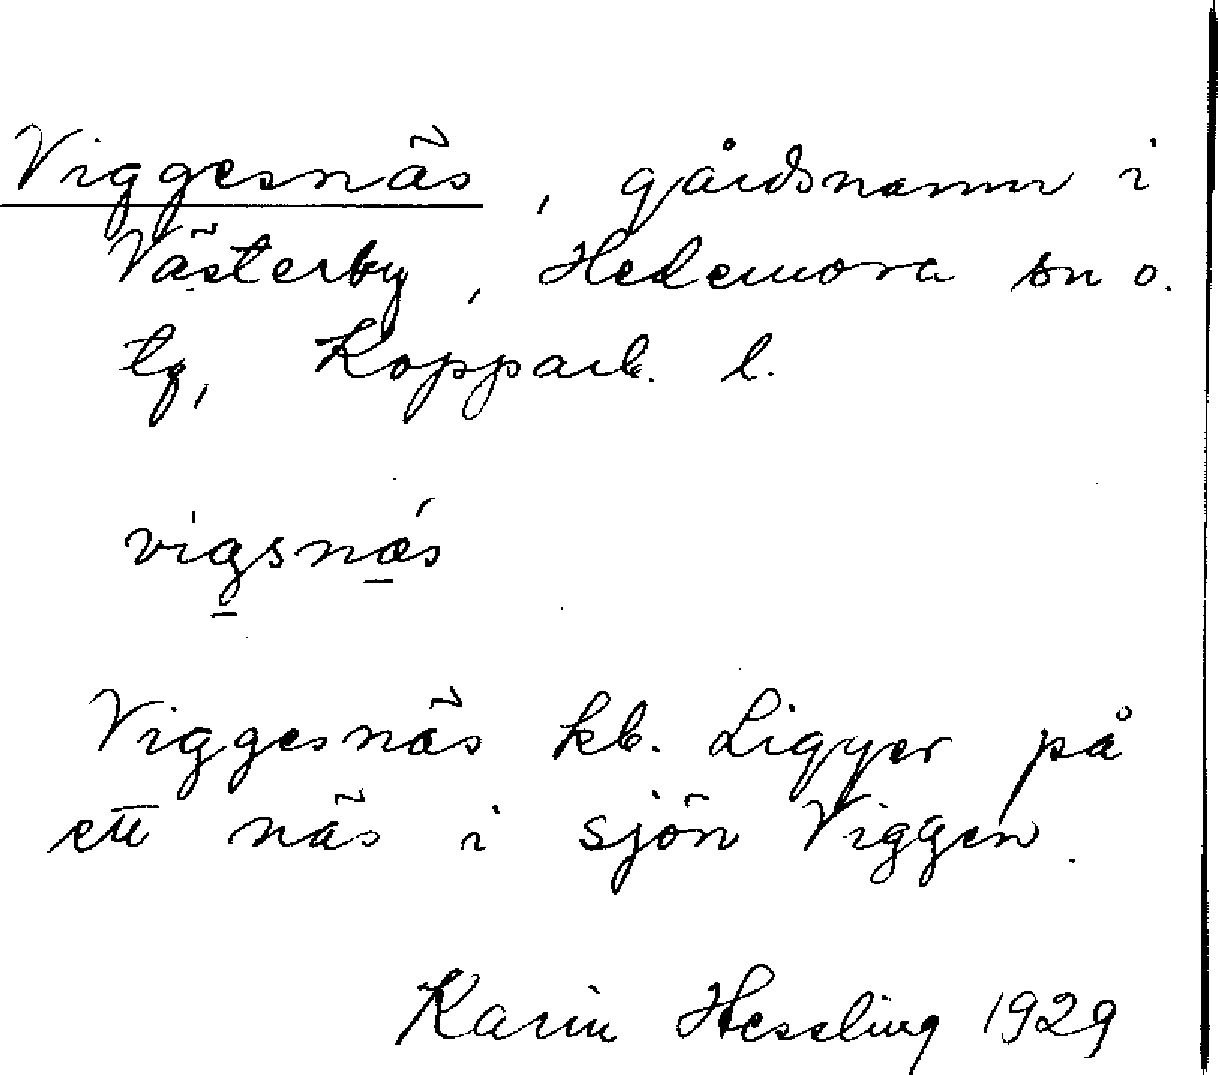 Viggesnäs, gårdsnamn i
Västerby, Hedemora sn o.
tg, Kopparb. l.
vigsnǽs
Viggesnäs kb. Ligger på
ett näs i sjön Viggen.
Karin Hessling 1929